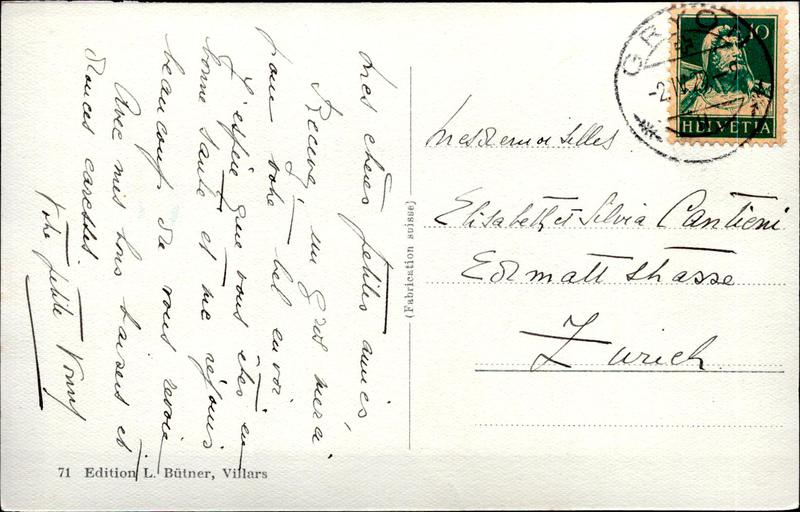 Mes chères petites amies,
Recevez un gros merci
pour votre bel envoi
J'espère que vous êtes en
bonne santé et me réjouis
beaucoup de vous revoir
Avec mes bons baisers et
douces caresses.
Votre petite Vonny
71 Edition L. Bütner, Villars
(Fabrication suisse)
GRYON
10
HELVETIA
Mesdemoiselles
Elisabeth et Silvia Cantieni
Edmattstrasse
Zurich